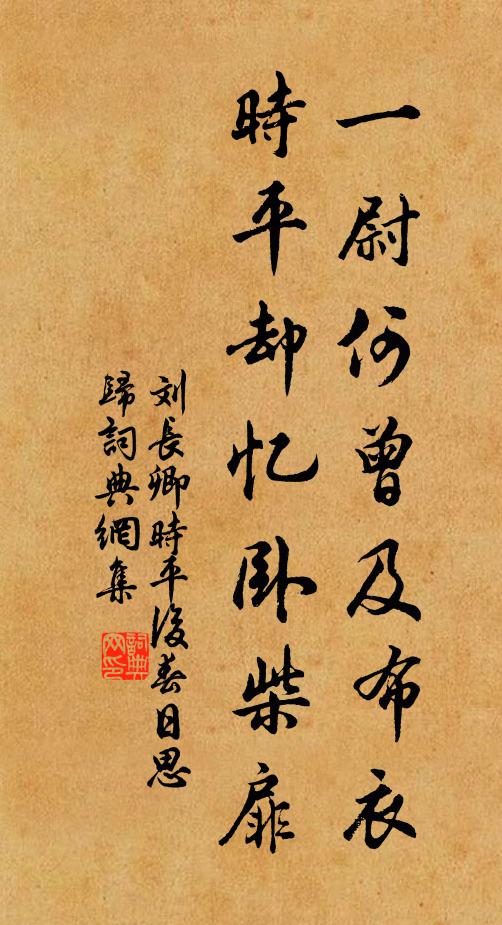 一尉何曾及布衣
時平却忆卧柴扉
刘長卿時平後春日思
歸詞典網集
詞典网印